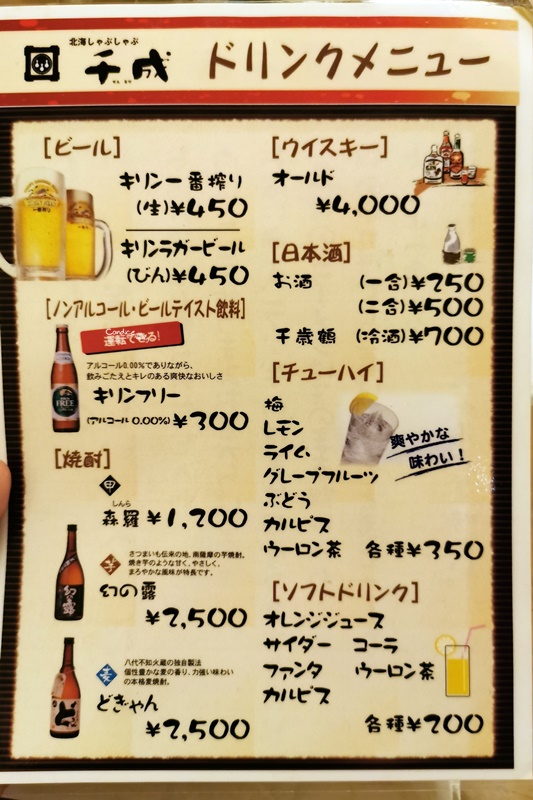 北海しゃぶしゃぶ
千成 ドリンクメニュー
[ビール]
キリン一番搾り
(生)¥450
キリンラガービール
(びん)¥450
[ノンアルコール・ビールテイスト飲料]
運転できる!
アルコール0.00%でありながら、
飲みごたえとキレのある爽快なおいしさ
キリンフリー
(アルコール 0.00%)¥300
FREE
[焼酎]
甲
しんら
森羅 ¥1,200
芋
さつまいも伝来の地、南薩摩の芋焼酎。
焼き芋のような甘く、やさしく、
まろやかな風味が特長です。
幻の露
¥2,500
麦
八代不知火蔵の独自製法
個性豊かな麦の香り、力強い味わい
の本格麦焼酎。
どぎゃん
¥2,500
[ウイスキー]
オールド
¥4,000
[日本酒]
お酒 (一合)¥250
(二合)¥500
千歳鶴 (冷酒)¥700
[チューハイ]
梅
レモン
ライム
グレープフルーツ
ぶどう
カルピス
ウーロン茶 各種¥350
爽やかな
味わい!
[ソフトドリンク]
オレンジジュース
サイダー コーラ
ファンタ ウーロン茶
カルピス
各種¥200